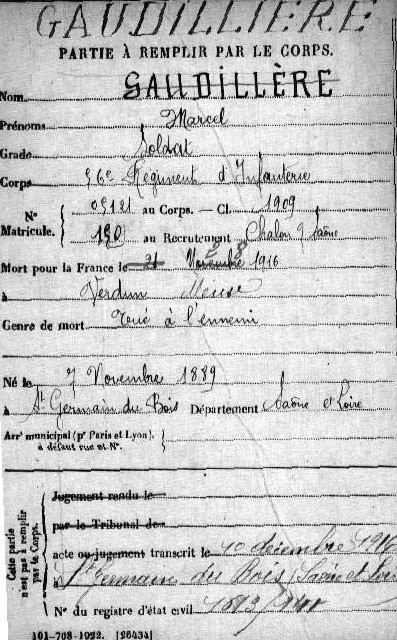 GAUDILLIERE
PARTIE À REMPLIR PAR LE CORPS.
Nom GAUDILLÈRE
Prénoms Marcel
Grade Soldat
Corps 56e Régiment d'Infanterie
N° Matricule. { 05121 au Corps. — Cl. 1909
190 au Recrutement Chalon s Saône
Mort pour la France le 1916
à Verdun Meuse
Genre de mort tué à l'ennemi
Né le 7 Novembre 1889
à St Germain du Bois Département Saône et Loire
Arrt municipal (pr Paris et Lyon),
à défaut rue et N°.
Cette partie n'est pas à remplir par le Corps.
Jugement rendu le
par le Tribunal de
acte ou jugement transcrit le 10 décembre
à St Germain du Bois (Saône et Loire
N° du registre d'état civil
101-708-1922. [26434]